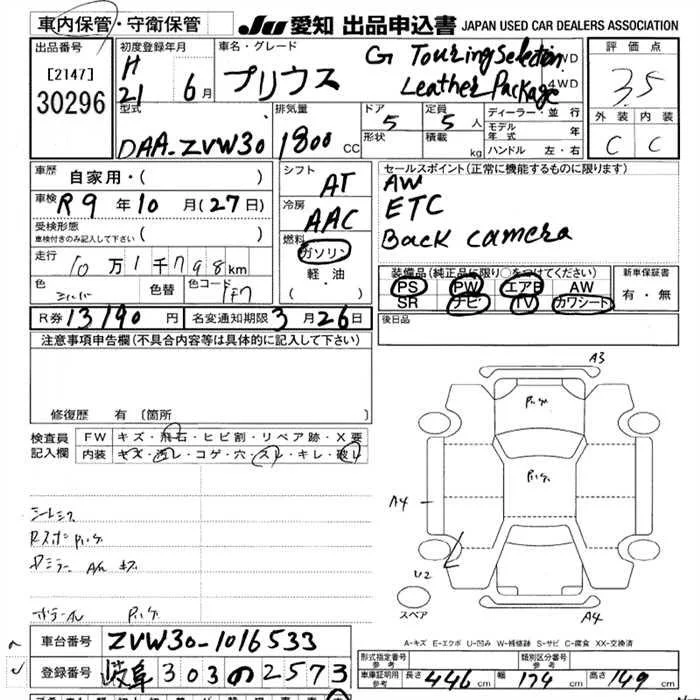 車内保管・守衛保管
JU 愛知 出品申込書 JAPAN USED CAR DEALERS ASSOCIATION
出品番号
[2147]
30296
初度登録年月
H
21 6月
車名・グレード
プリウス
G Touring Selection
Leather Package
WD
4WD
評価点
3.5
外装 内装
C C
型式
DAA-ZVW30
排気量
1800 CC
ドア 5
形状
定員 5 人
積載 kg
ディーラー・並行
モデル年式 年
ハンドル 左・右
車歴
自家用・( )
車検 R9年10月(27日)
受検形態
車検付きのみ記入して下さい ( )
走行 10万1千798km
色 シルバー 色替 色コード 1F7
シフト AT
冷房 AAC
燃料
ガソリン
軽・油
( )
セールスポイント(正常に機能するものに限ります)
AW
ETC
Back camera
装備品(純正品に限り○をつけてください)
PS PW エアB AW
SR ナビ TV カワシート
新車保証書
有・無
R券 13190円 名変通知期限 3月26日
後日品
注意事項申告欄(不具合内容等は具体的に記入して下さい)
修復歴 有 〔箇所 〕
検査員記入欄
FW キズ・飛石・ヒビ割・リペア跡・X要
内装 キズ・汚レ・コゲ・穴・スレ・キレ・破レ
シートスク
Rスポ
A3
A4
U2
A4
スペア
A-キズ E-エクボ U-凹み W-補修跡 S-サビ C-腐食 XX-交換済
車台番号 ZVW30-1016533
登録番号 岐阜 303 の 2573
形式指定番号 参考
類別区分番号 参考
車庫証明用 参考 長さ 446 cm 幅 174 cm 高さ 149 cm